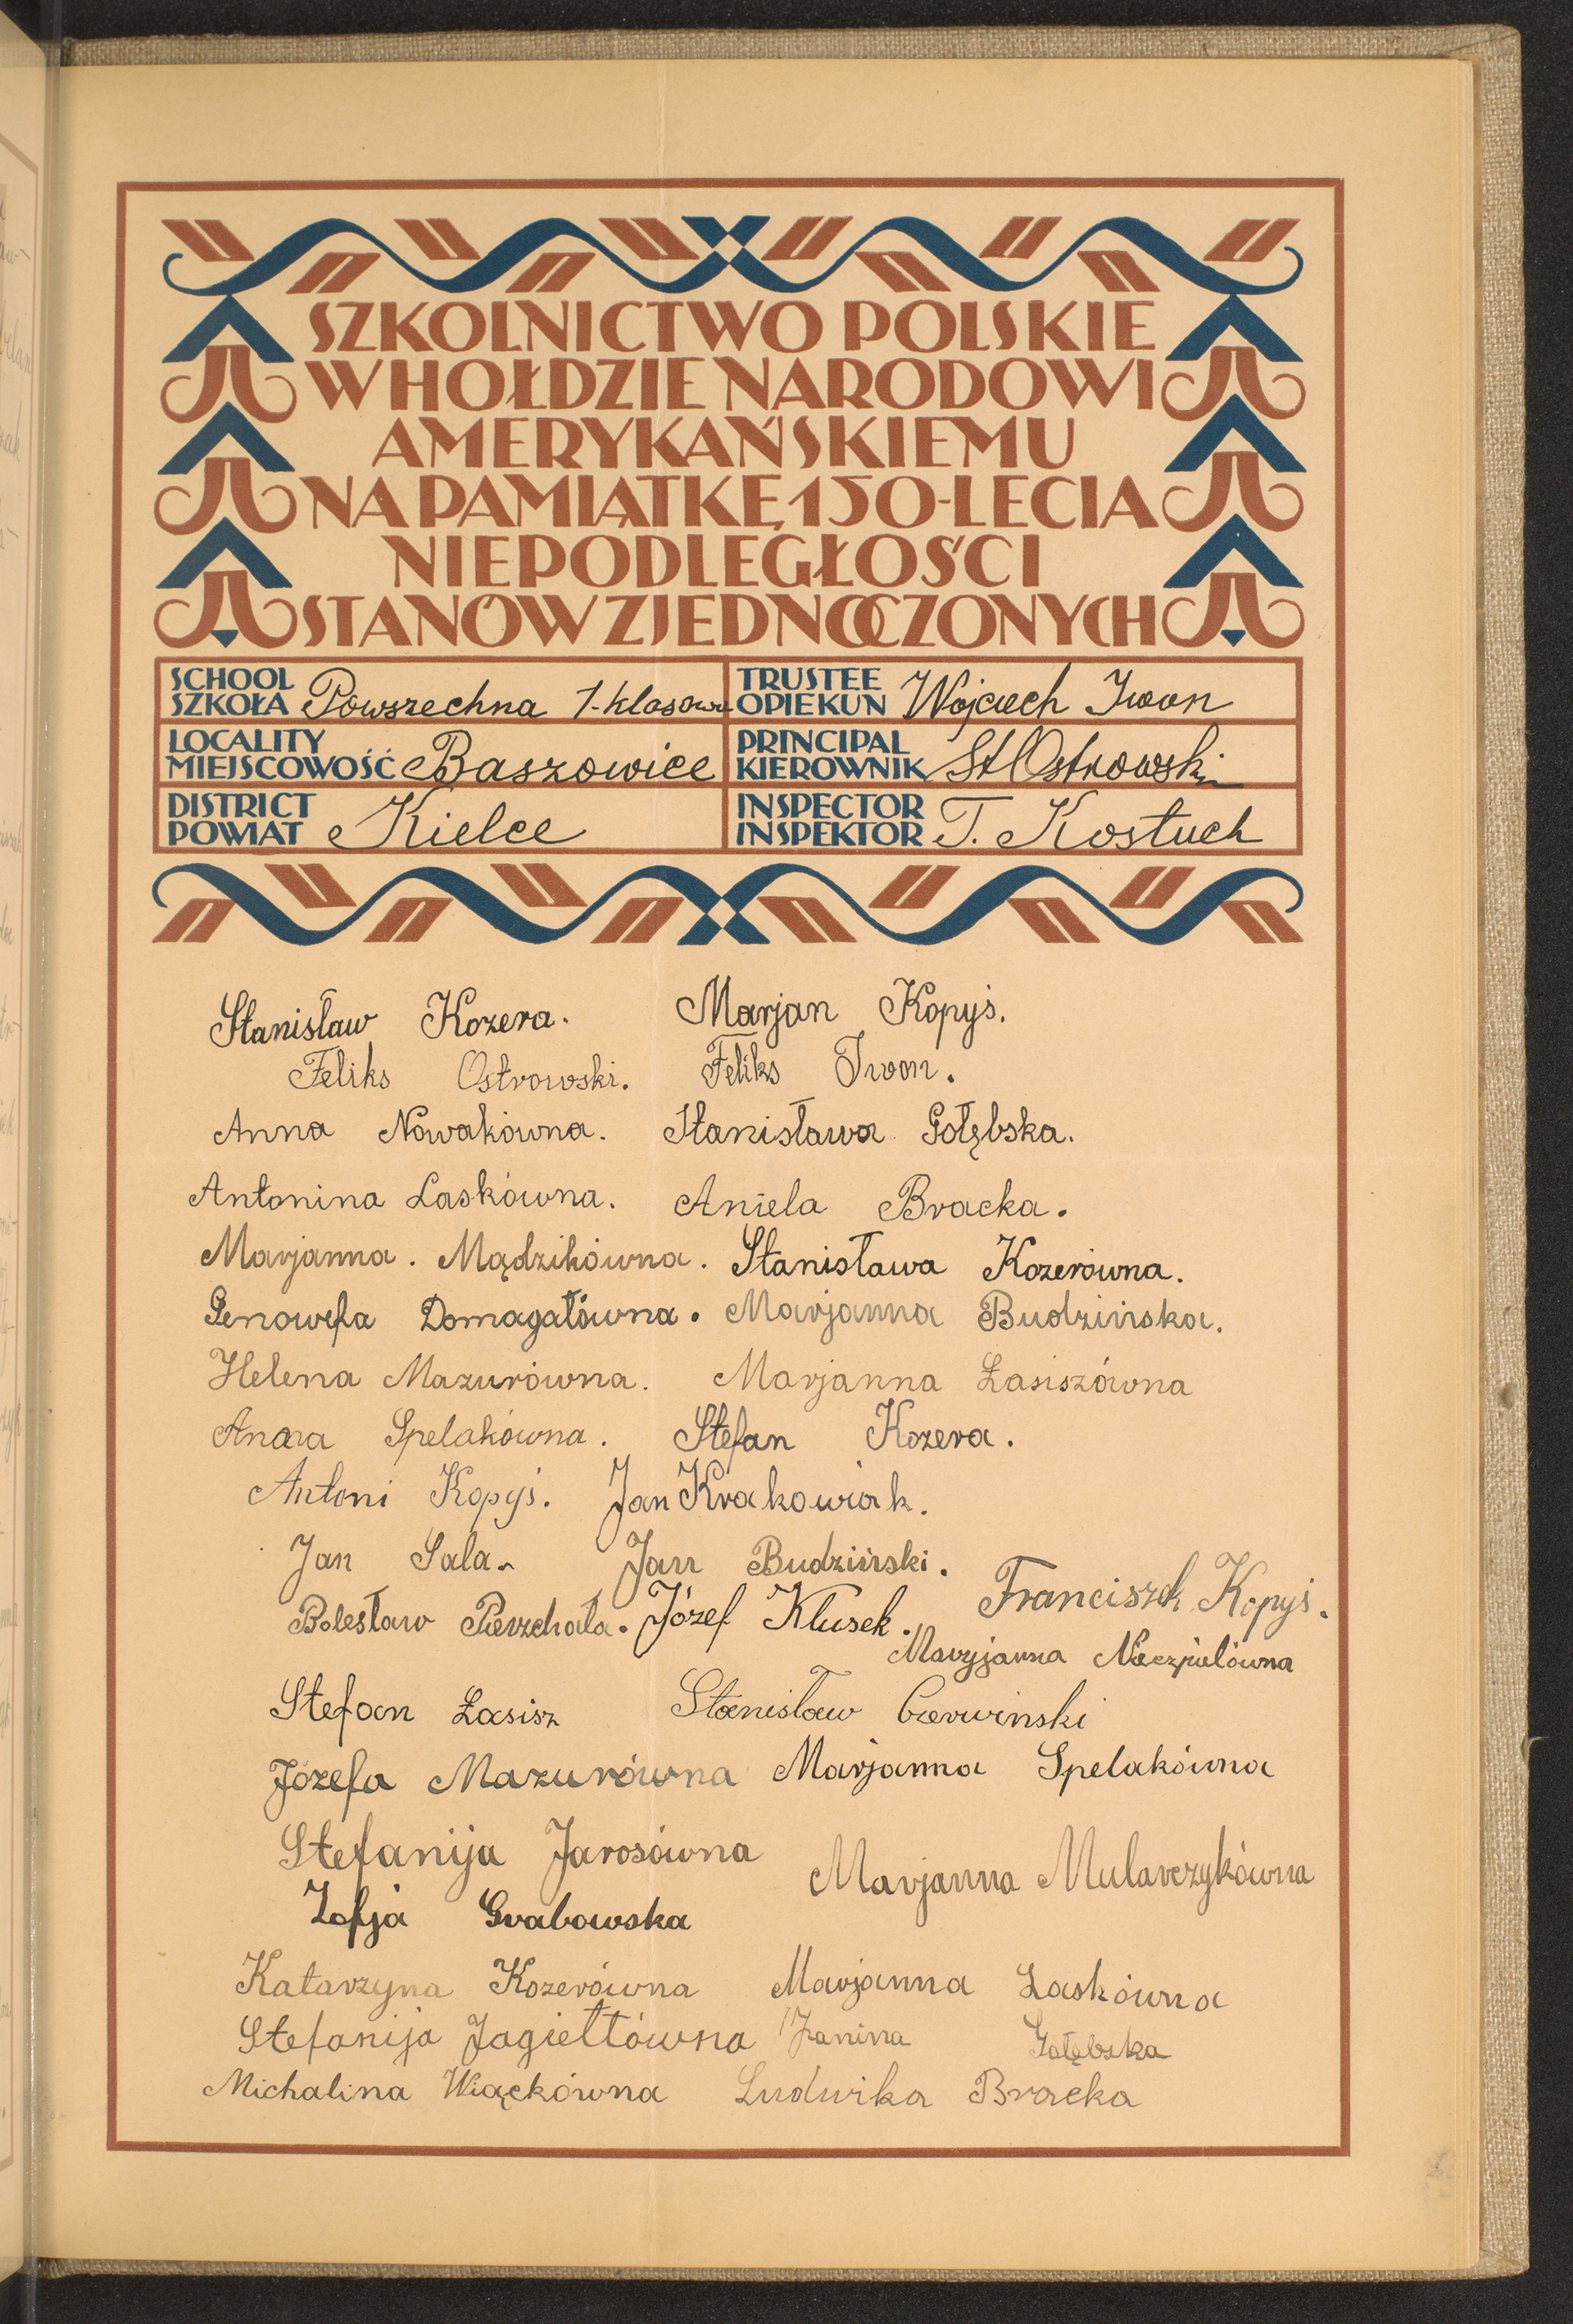 SZKOLNICTWO POLSKIE
W HOŁDZIE NARODOWI
AMERYKAŃSKIEMU
NA PAMIĄTKĘ 150-LECIA
NIEPODLEGŁOŚCI
STANÓW ZJEDNOCZONYCH
SCHOOL
SZKOŁA Powszechna 1-klasowa
TRUSTEE
OPIEKUN Wojciech Iwon
LOCALITY
MIEJSCOWOŚĆ Baszowice
PRINCIPAL
KIEROWNIK St Ostrowski
DISTRICT
POWIAT Kielce
INSPECTOR
INSPEKTOR T. Kostuch
Stanisław Kozera. Marjan Kopyś.
Feliks Ostrowski. Feliks Iwon.
Anna Nowakówna. Stanisława Gołębska.
Antonina Laskówna. Aniela Bracka.
Marjanna. Mądzikówna. Stanisława Kozerówna.
Genowefa Domagałówna. Marjanna Budzińska.
Helena Mazurówna. Marjanna Łasiszówna
Anna Spelakówna. Stefan Kozera.
Antoni Kopyś. Jan Krakowiak.
Jan Sala. Jan Budziński.
Franciszek Kopyś.
Bolesław Pierzchała. Józef Klusek.
Maryjanna
Stefan Łasisz Stanisław Czerwinski
Józefa Mazurówna Marjanna Spelakówna
Stefanija Jarosówna
Marjanna Mularczykówna
Zofja Grabowska
Katarzyna Kozerówna Marjanna Laskówna
Stefanija Jagiełłówna Janina Gołębska
Michalina Wiąckówna Ludwika Bracka